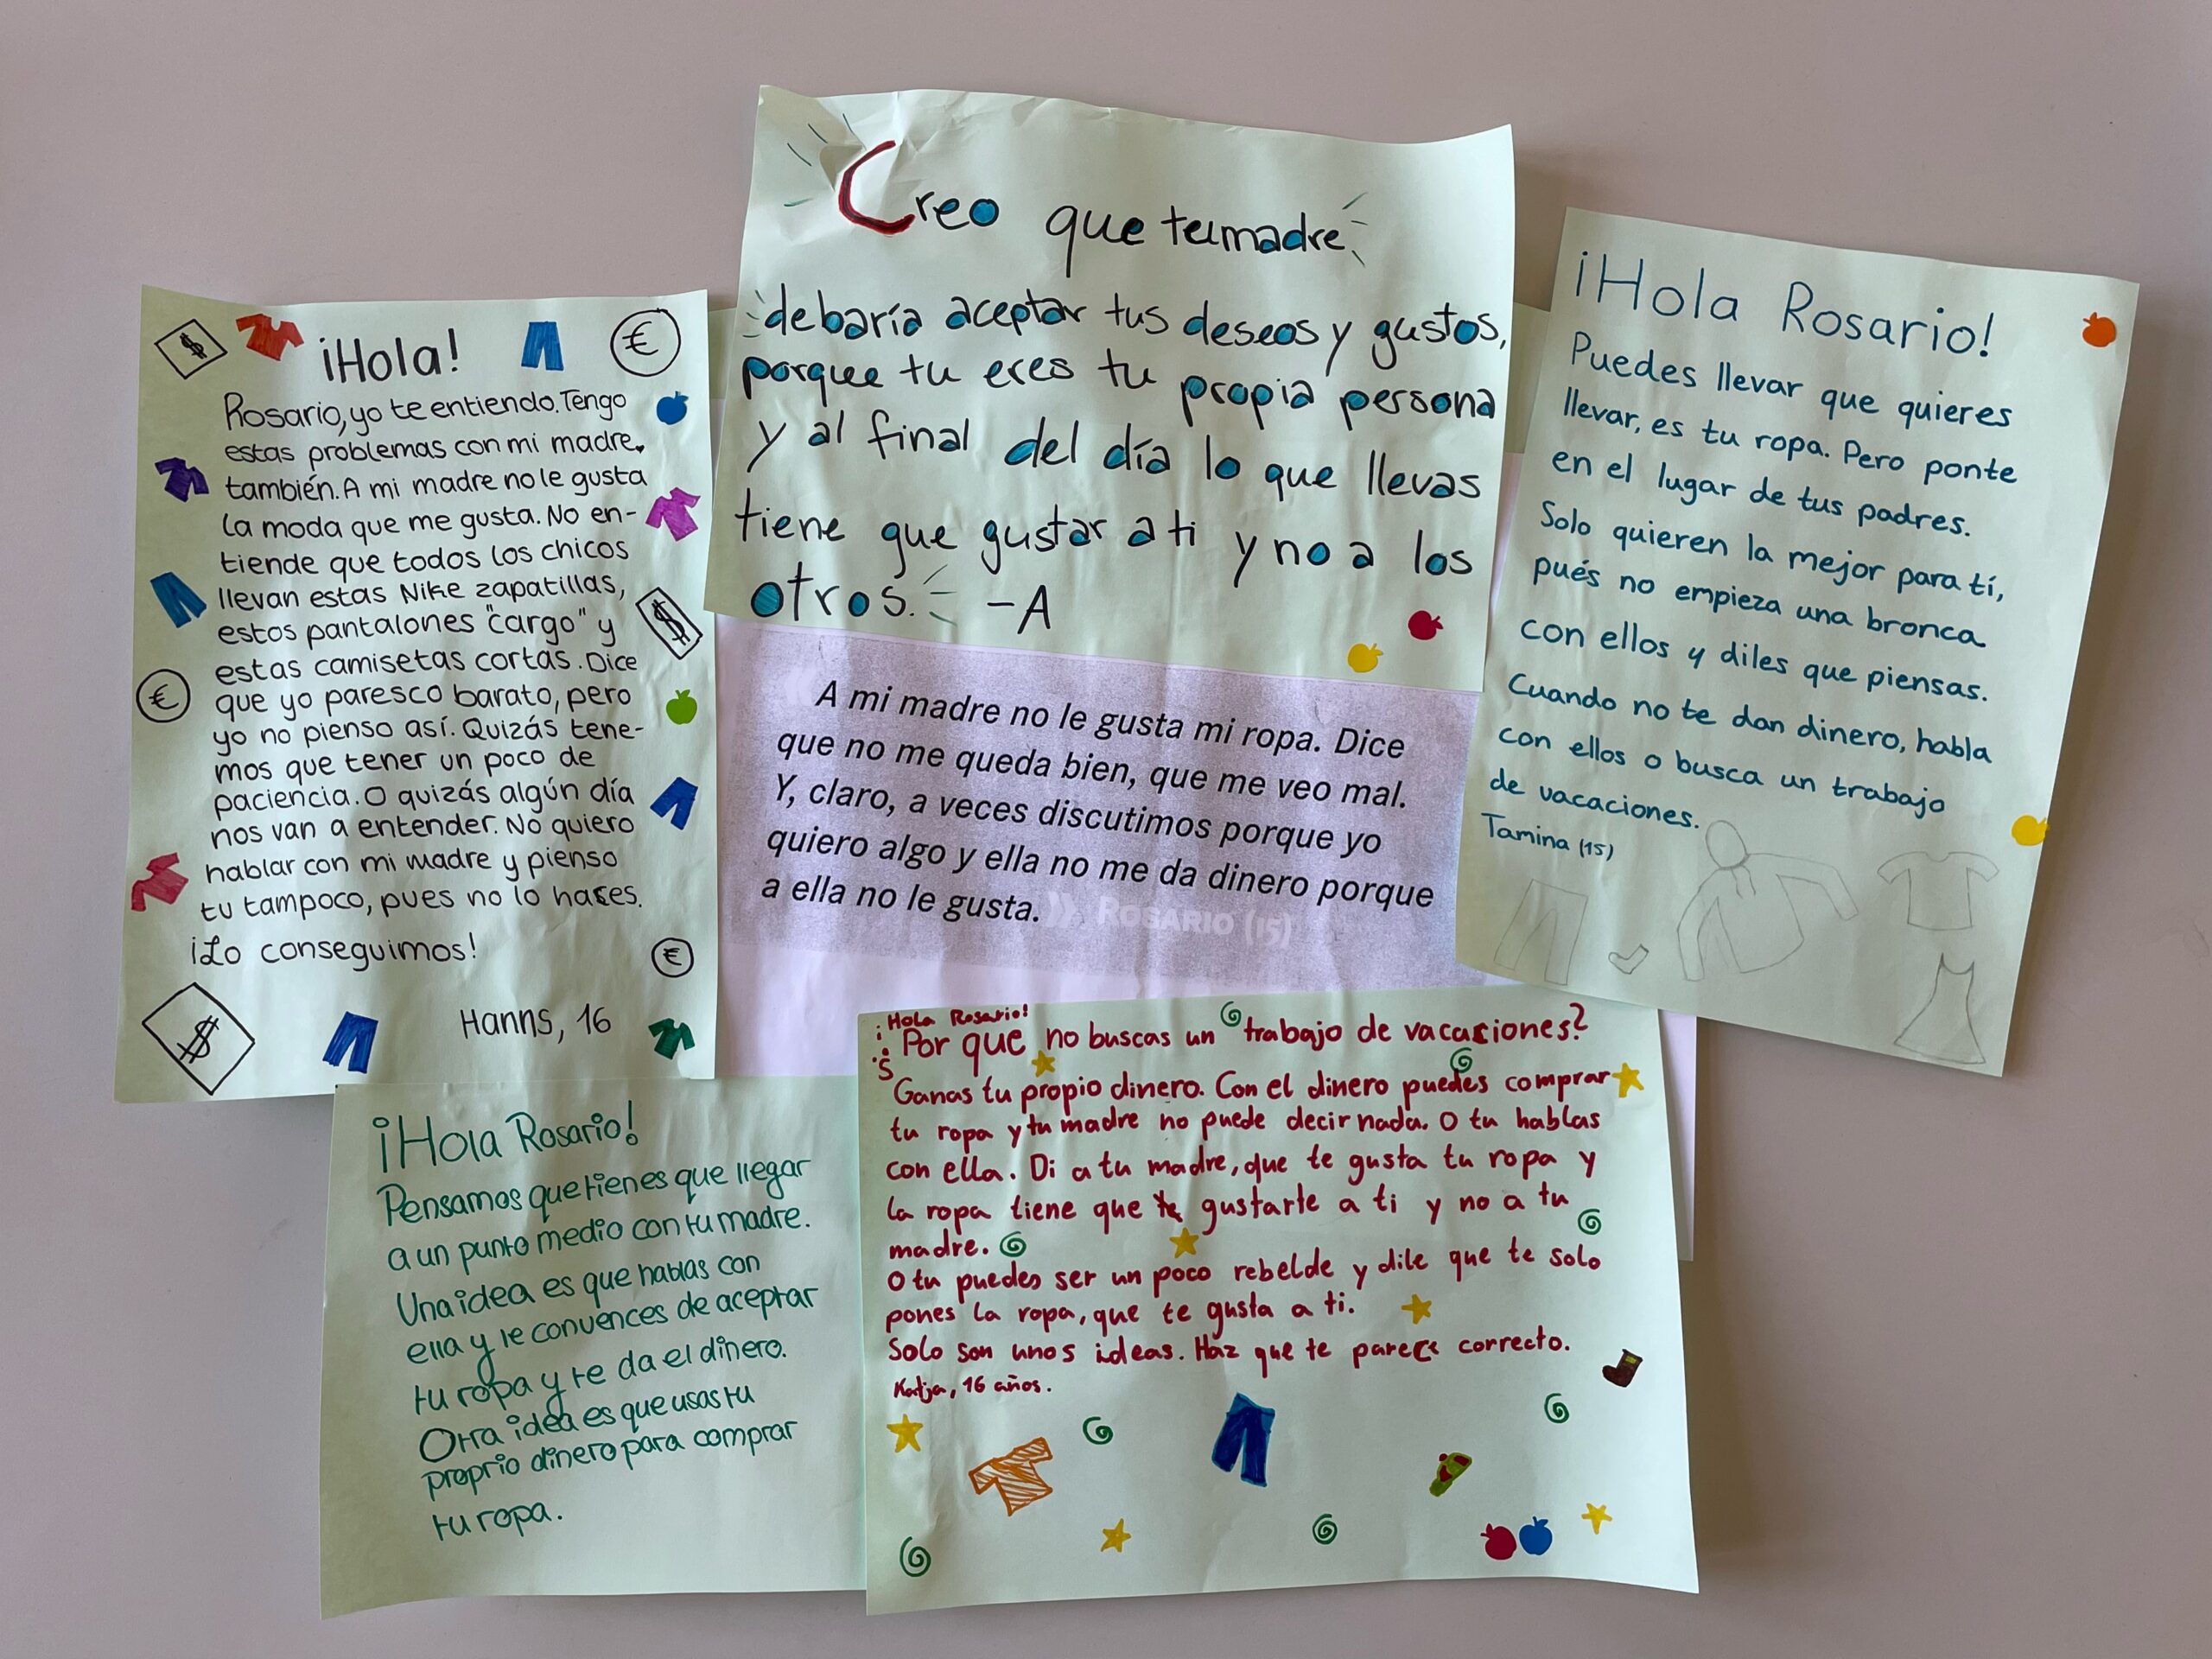 ¡Hola!
Rosario, yo te entiendo. Tengo
estas problemas con mi madre.
también. A mi madre no le gusta
la moda que me gusta. No en-
tiende que todos los chicos
llevan estas Nike zapatillas,
estos pantalones "cargo" y
estas camisetas cortas. Dice
que yo paresco barato, pero
yo no pienso así. Quizás tene-
mos que tener un poco de
paciencia. O quizás algún día
nos van a entender. No quiero
hablar con mi madre y pienso
tu tampoco, pues no lo hases.
¡Lo conseguimos!
Hanns, 16
$
€
$
€
€
$
Creo que tu madre
debaría aceptar tus deseos y gustos,
porque tu eres tu propia persona
y al final del día lo que llevas
tiene que gustar a ti y no a los
otros. -A
¡Hola Rosario!
Puedes llevar que quieres
llevar, es tu ropa. Pero ponte
en el lugar de tus padres.
Solo quieren la mejor para tí,
pués no empieza una bronca
con ellos y diles que piensas.
Cuando no te dan dinero, habla
con ellos o busca un trabajo
de vacaciones.
Tamina (15)
« A mi madre no le gusta mi ropa. Dice
que no me queda bien, que me veo mal.
Y, claro, a veces discutimos porque yo
quiero algo y ella no me da dinero porque
a ella no le gusta. » ROSARIO (15)
¡Hola Rosario!
Pensamos que tienes que llegar
a un punto medio con tu madre.
Una idea es que hablas con
ella y le convences de aceptar
tu ropa y te da el dinero.
Otra idea es que usas tu
proprio dinero para comprar
tu ropa.
¡Hola Rosario!
¿Por que no buscas un trabajo de vacaciones?
Ganas tu propio dinero. Con el dinero puedes comprar
tu ropa y tu madre no puede decir nada. O tu hablas
con ella. Di a tu madre, que te gusta tu ropa y
la ropa tiene que gustarte a ti y no a tu
madre.
O tu puedes ser un poco rebelde y dile que te solo
pones la ropa, que te gusta a ti.
Solo son unos ideas. Haz que te parece correcto.
Katja, 16 años.